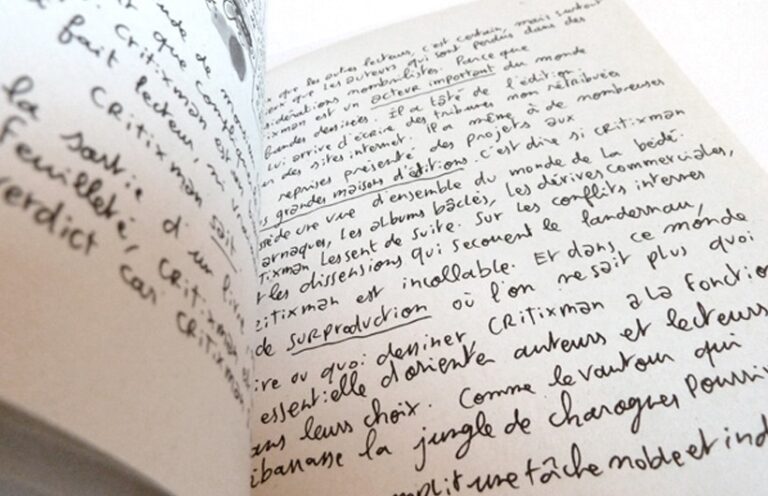 nde de mon
r que comp
CRitixman
fait lecteur, ni vra
CRitixman sait
la sortie d'un livre
Feuilleté, CRitixman
erdict car CRitixman
que les autres lecteurs, c'est certain, mais surtout
eux que les auteurs qui sont perdus dans des
sidérations nombrilistes. Parce que
ixman est un acteur important du monde
bandes dessinées. Il a tâté de l'édition.
lui arrive d'écrire des tribunes non rétribuées
des sites internet. Il a même à de nombreuses
reprises présenté des projets aux
s grandes maisons d'éditions. C'est dire si CRitixman
ssède une vue d'ensemble du monde de la bédé.
arnaques, les albums bâclés, les dérives commerciales,
tixman les sent de suite. Sur les conflits internes
t les dissensions qui secouent le landernau,
ritixman est incollable. Et dans ce monde
de SURPRODUCTION où l'on ne sait plus quoi
ire ou quoi dessiner, CRitixman a la fonction
essentielle d'orienter auteurs et lecteurs
ans leurs choix. Comme le vautour qui
ébarrasse la jungle de charognes pourri
mplit une tâche noble et ind